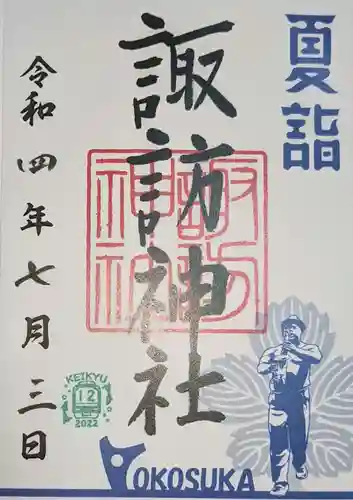 夏詣
諏訪神社
令和四年七月三日
諏訪
神社
KEIKYU
12
2022
YOKOSUKA